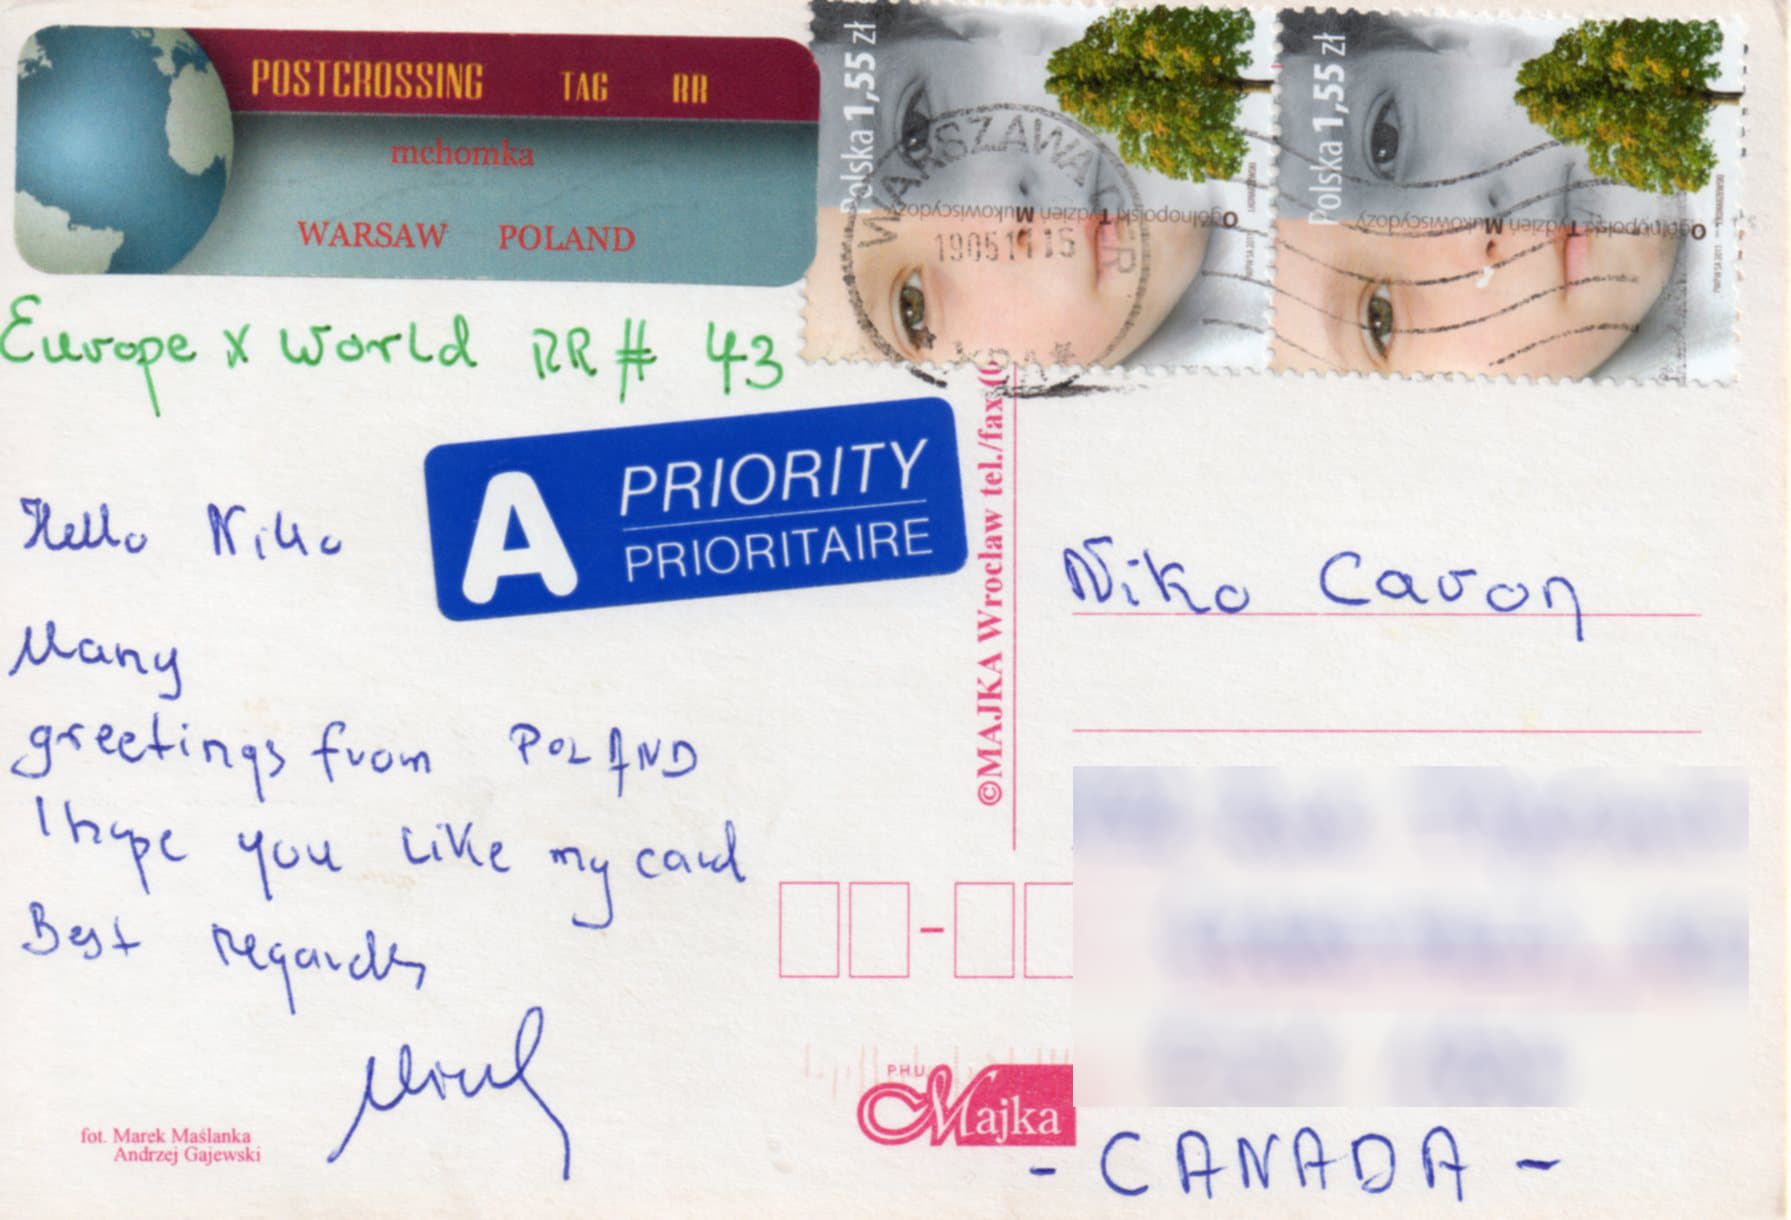 POSTCROSSING TAG RR
mchomka
WARSAW POLAND
Europe X World RR # 43
A PRIORITY
PRIORITAIRE
Hello Niko
Many
greetings from POLAND
I hope you like my card
Best Regards
fot. Marek Maślanka
Andrzej Gajewski
Polska 1,55 zł
Ogólnopolski Tydzień Mukowiscydozy
Polska 1,55 zł
Ogólnopolski Tydzień Mukowiscydozy
WARSZAWA
190511 15
©MAJKA Wrocław tel./fax
Niko Cavon
P.H.U.
Majka
- CANADA -